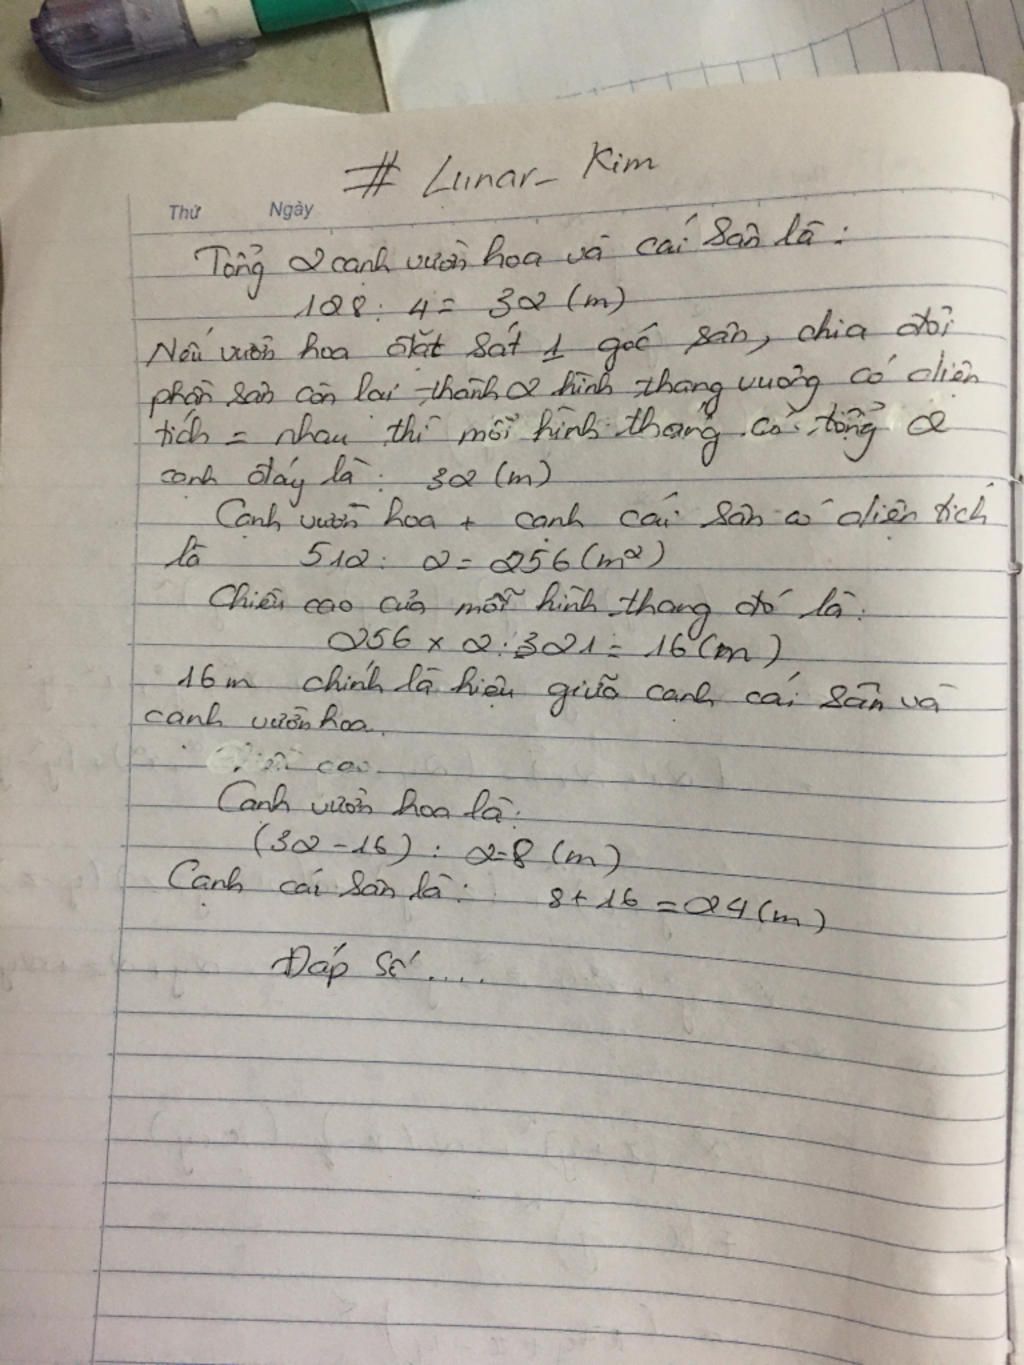 # Lunar_ Kim
Thứ Ngày
Tổng 2 cạnh vườn hoa và cái sân là:
128 : 4 = 32 (m)
Nếu vườn hoa đặt sát 1 góc sân, chia đôi
phần sân còn lại thành 2 hình thang vuông có diện
tích = nhau thì mỗi hình thang có tổng 2
cạnh đáy là: 32 (m)
Cạnh vườn hoa + cạnh cái sân có diện tích
là 512 : 2 = 256 (m2)
Chiều cao của mỗi hình thang đó là:
256 x 2 : 321 = 16 (m)
16 m chính là hiệu giữa cạnh cái sân và
cạnh vườn hoa.
cao
Cạnh vườn hoa là:
(32 - 16) : 2 = 8 (m)
Cạnh cái sân là: 8 + 16 = 24 (m)
Đáp số ....